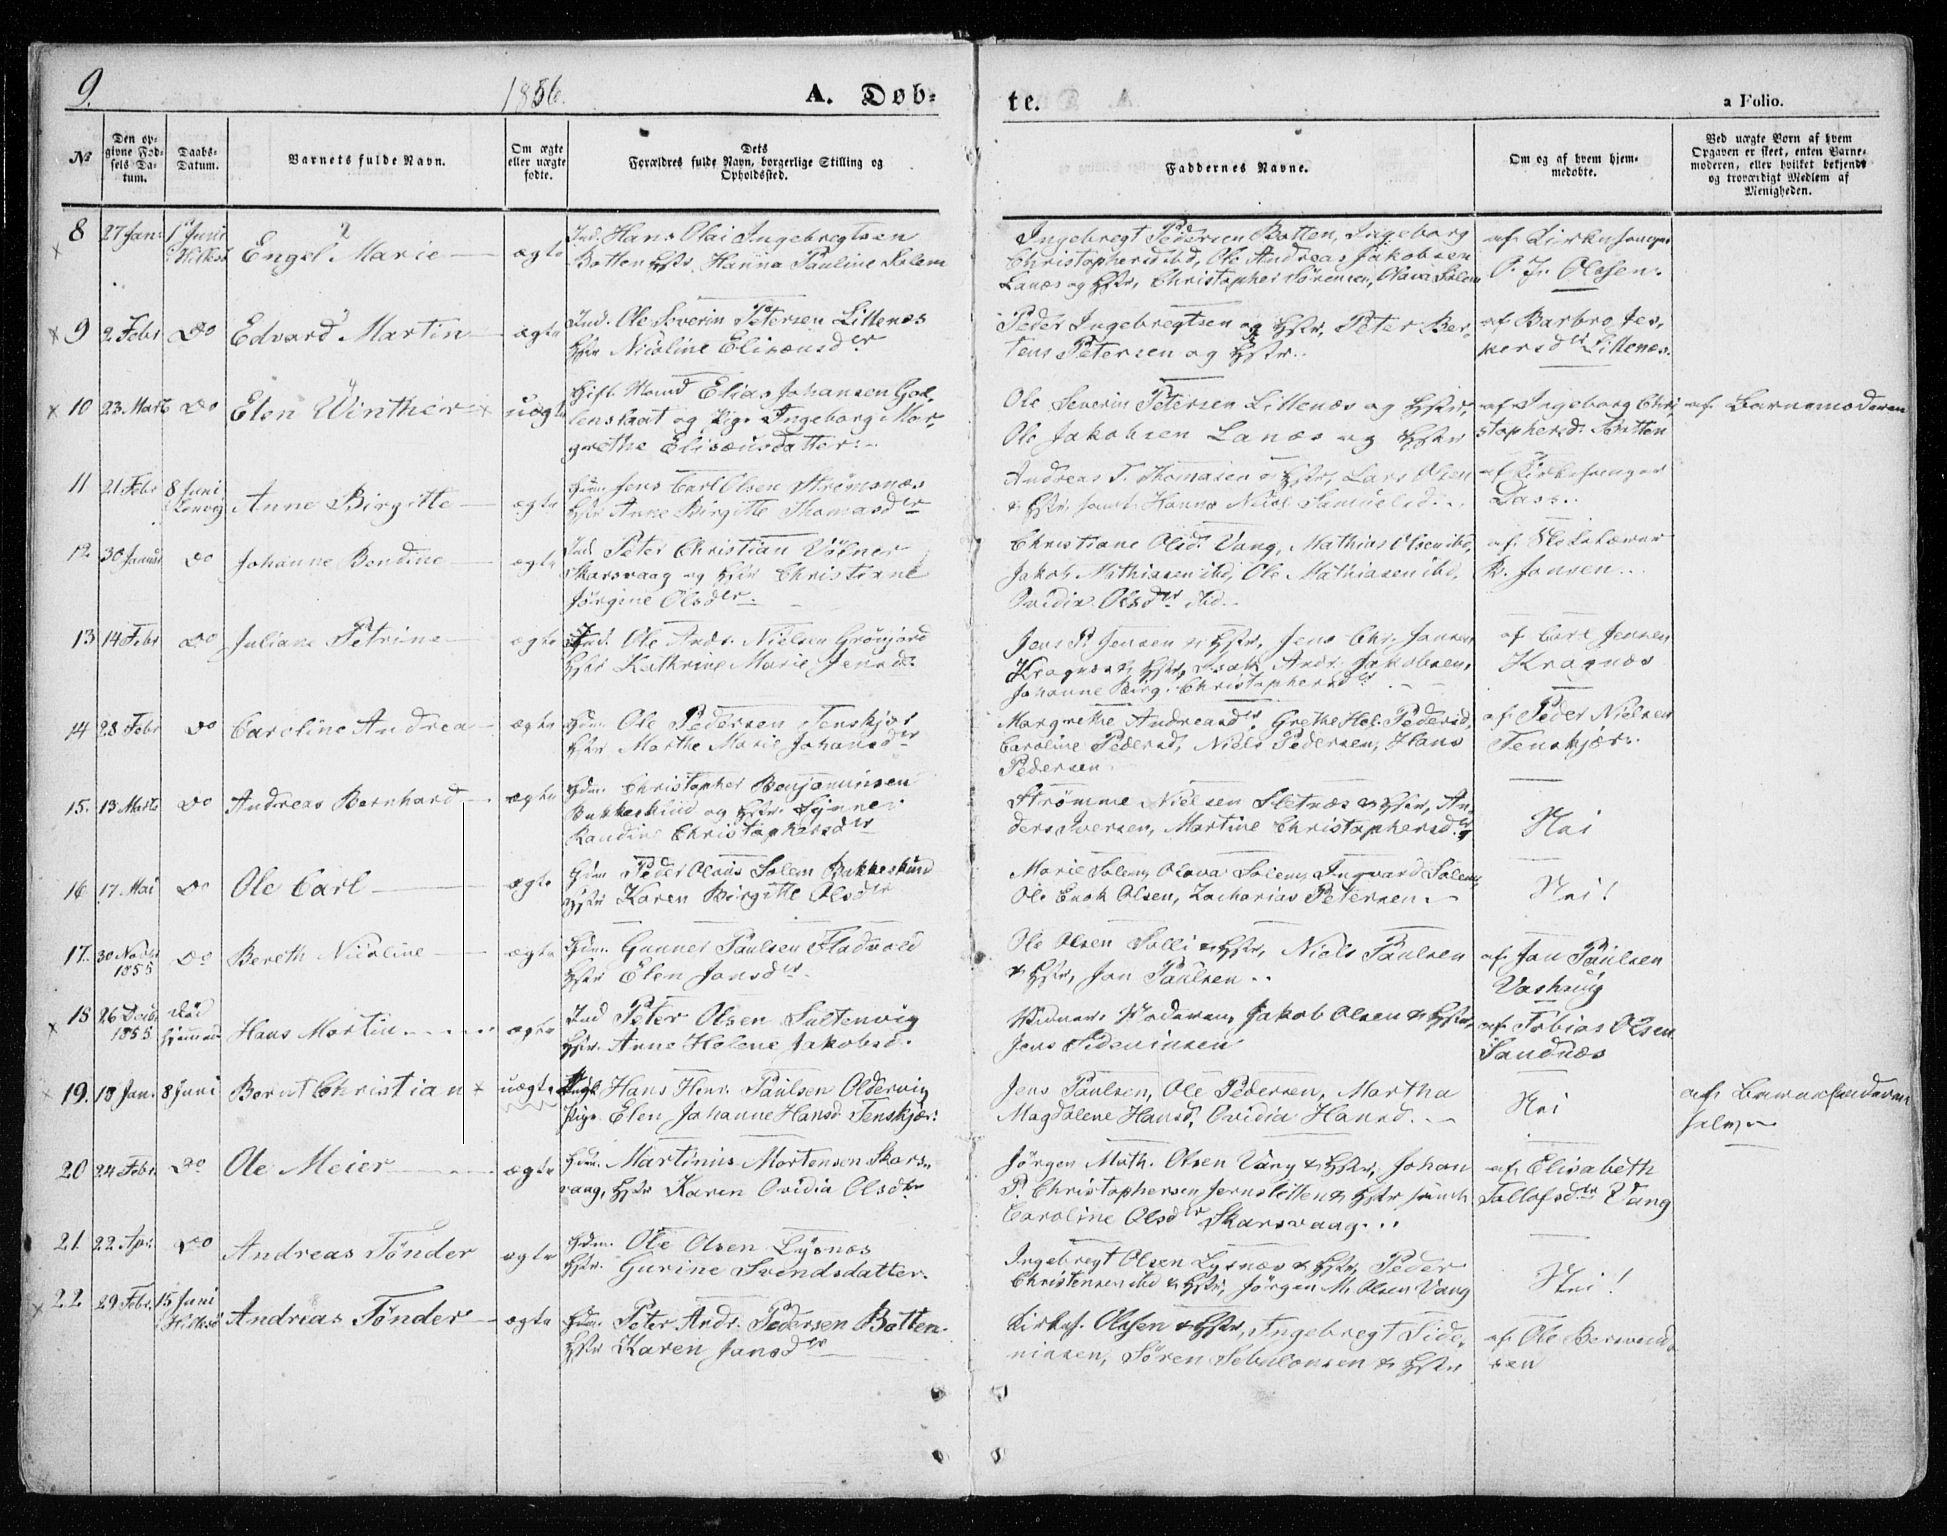 9.
1856.
A. Døb-
te.
a Folio.
No
Den op-
givne Fød-
sels Da-
tum.
Daabs-
Datum.
Barnets fulde Navn.
Om ægte
eller uægte
fødte.
Dets
Forældres fulde Navn, borgerlige Stilling og
Opholdssted.
Faddernes Navne.
Om og af hvem hjem-
medøbte.
Ved uægte Børn af hvem
Opgaven er skeet, enten Barne-
moderen, eller hvilket bekjendt
og troværdigt Medlem af
Menigheden.
8 27 Jan: 1 Juni Engel Marie ægte Ind. Hans Olai Ingebregtsen
Botten Hstr. Hanna Pauline Solem
Ingebregt Pedersen Botten, Ingeborg
Christophersd ibd, Ole Andreas Jakobsen
Lanæs og Hstr, Christopher Sørensen, Olava Solem
af Kirkesanger
P. J. Olesen.
9 2 Febr Do Edvard Martin ægte Ind. Ole Severin Petersen Lillenæs
Hstr Nicoline Elisæusdtr
Peder Ingebregtsen og Hstr, Peter Ber-
tens Petersen og Hstr.
af Barbro Jes-
persdtr Lillenæs.
10 23. Marts Do Elen Winther uægte Gift Mand Elias Johansen Gol-
lenslaat og Pige Ingeborg Mar-
grethe Elisæusdatter.
Ole Severin Petersen Lillenæs og Hstr,
Ole Jakobsen Lanæs og Hstr
af Ingeborg Chri-
stophersd. Botten
af Barnemoderen
11 21 Febr 8 Juni Anne Birgitte ægte Hdm. Jens Carl Olsen Strømsnæs
Hstr Anne Birgitte Thomasdtr
Andreas T. Thomasen & Hstr, Lars Olsen
& Hstr, samt Hanna Nicol. Samuelsd.
af Kirkesanger
Dass.
12. 30 Januar Do Johanne Bendine ægte Ind Peter Christian Vibner
Skarsvaag og Hstr Christiane
Jørgine Olsdtr.
Christiane Olsd. Vang, Mathias Olsen ibd,
Jakob Mathiasen ibd, Ole Mathiasen ibd,
Ovidia Olsdtr ibd.
af Skolelærer
K. Jansen.
13 14 Febr Do Juliane Petrine ægte Ind. Ole Andr. Nielsen Grønjord
Hstr Kathrine Marie Jensd.
Jens P. Jensen & Hstr, Jens Chr. Jansen
Kragnæs & Hstr, Isak Andr. Jakobsen,
Johanne Birg. Christophersdtr
af Carl Jensen
Kragnæs
14 28 Febr Do Caroline Andrea ægte Hdm. Ole Pedersen Tenskjær
Hstr Marthe Marie Johansdtr
Margrethe Andreasdtr, Grethe Hel. Pedersd,
Caroline Pedersd, Niels Pedersen, Hans
Pedersen
af Peder Nielsen
Tenskjær.
15. 13 Marts Do Andreas Bernhard ægte Hdm. Christopher Benjaminsen
Bakkeskind og Hstr. Synne
Randine Christophersdtr
Strømme Nielsen Sletnæs & Hstr, An-
ders Iversen, Martine Christophersdtr
Nei
16 17. Mai Do Ole Carl ægte Hdm Peder Olaus Solem Bakkeskind
Hstr Karen Birgitte Olsdtr
Marie Solem, Olava Solem, Ingvard Solem,
Ole Enok Olsen, Zacharias Petersen.
Nei!
17. 30 Novbr
1855 Do Bereth Nicoline ægte Hdm. Gunner Paulsen Fladvold
Hstr Elen Jansdtr.
Ole Olsen Solli & Hstr, Niels Paulsen
& Hstr, Jon Paulsen.
af Jon Paulsen
18 26 Decbr
1855 Død
hjemme Hans Martin ægte Ind Peter Olsen Sultenvig
Hstr. Anne Helene Jakobsd.
Jakob Olsen & Hstr,
af Tobias Olsen
Sandnæs
19. 18 Jan. 8 Juni Bernt Christian uægte Ungk. Hans Henr. Paulsen Oldervig
Pige Elen Johanne Hansd Tenskjær.
Jens Paulsen, Ole Pedersen, Martha
Magdalene Hansd, Ovidia Hansd.
Nei
af Barnefaderen
selv
20 24 Febr. Do Ole Meier ægte Hdm. Martinus Mortensen Skars-
vaag, Hstr Karen Ovidia Olsdtr
Jørgen Math. Olsen Vang & Hstr, Johan
P. Christophersen Jernsletten & Hstr samt
Caroline Olsdtr Skarsvaag.
af Elisabeth
Tollofsdtr Vang
21. 22 Apr. Do Andreas Tønder ægte Hdm. Ole Olsen Lysnæs
Hstr. Gurine Svendsdatter.
Ingebregt Olsen Lysnæs & Hstr, Peder
Christensen ibd & Hstr, Jørgen M. Olsen Vang
Nei!
22 29 Febr. 15 Juni Andreas Tønder ægte Hdm. Peter Andr. Pedersen Botten
Hstr Karen Jansdtr
Kirkes. Olesen & Hstr, Ingebregt Side-
niusen, Søren Sebulonsen & Hstr
af Ole Berend-
sen